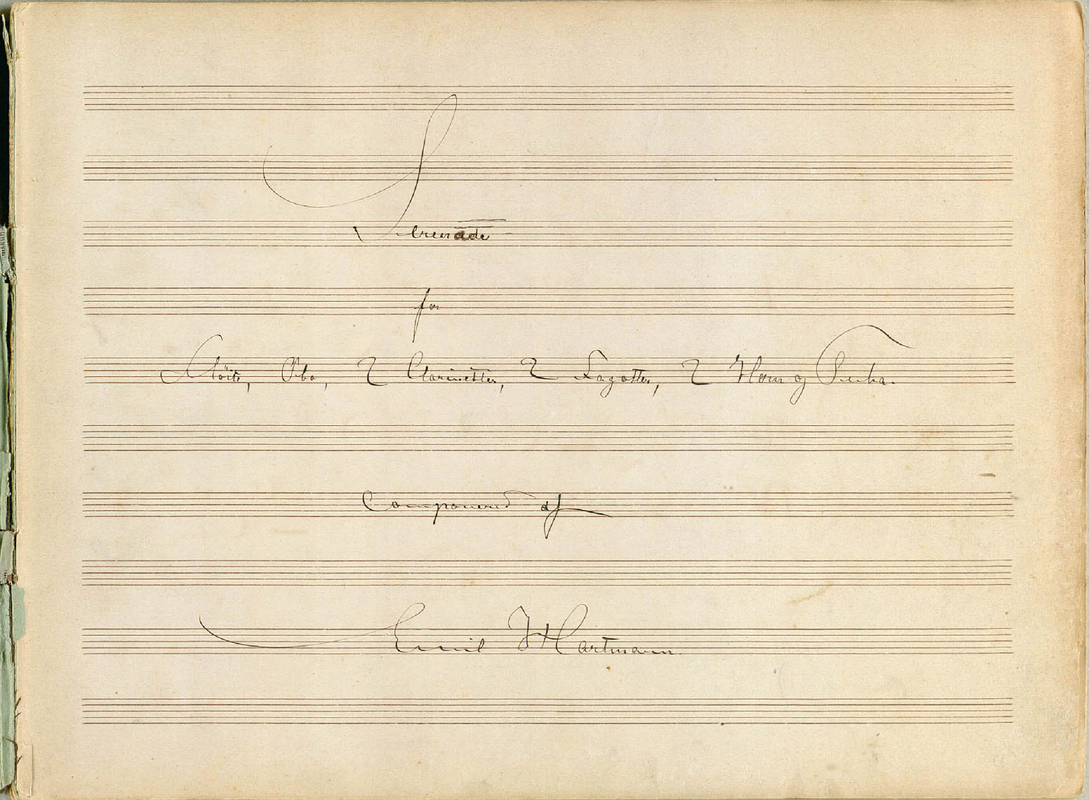 Serenade
for
Flöite, Obo, 2 Clarinetter, 2 Fagotter, 2 Horn og Tuba.
Componered af
Emil Hartmann.